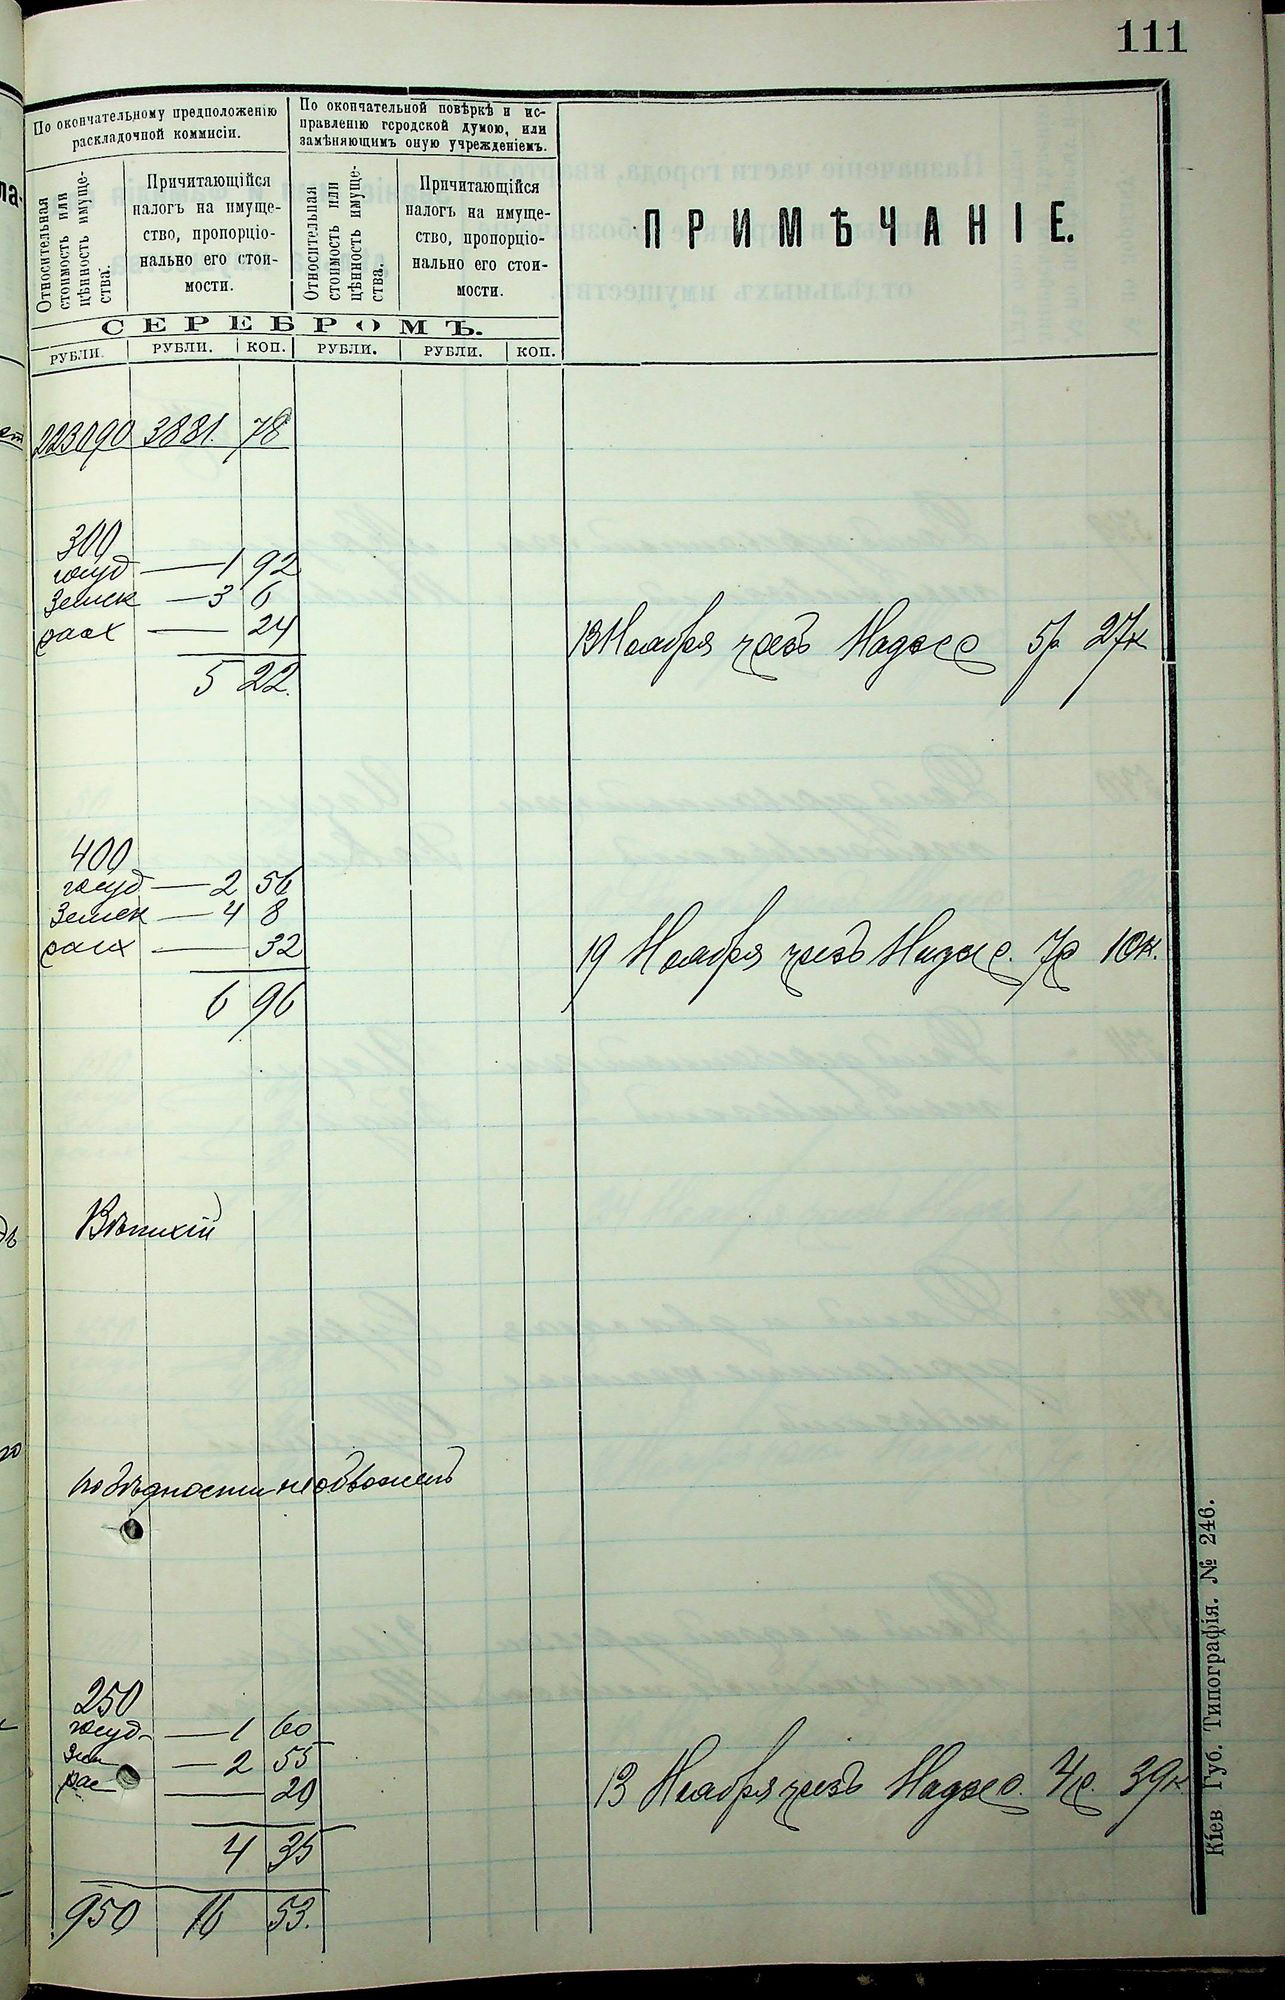 111
По окончательному предположенію
раскладочной коммисіи.
По окончательной повѣркѣ и ис-
правленію городской думою, или
замѣняющимъ оную учрежденіемъ.
Относительная
стоимость или
цѣнность имуще-
ства.
Причитающійся
налогъ на имуще-
ство, пропорціо-
нально его стои-
мости.
Относительная
стоимость или
цѣнность имуще-
ства.
Причитающійся
налогъ на имуще-
ство, пропорціо-
нально его стои-
мости.
ПРИМѢЧАНІЕ.
СЕРЕБРОМЪ.
РУБЛИ. РУБЛИ. КОП. РУБЛИ. РУБЛИ. КОП.
223090 3881. 78
300
госуд — 1 92
Земск — 3 6
расх — 24
5 22.
13 Ноября чрезъ Надзс 5р 27к
400
госуд — 2 56
Земск — 4 8
расх — 32
6 96
19 Ноября чрезъ Надзс. 7р 10к.
Вѣтхій
по бѣдности не обложенъ
250
госуд — 1 60
Зем — 2 55
рас — 20
4 35
13 Ноября чрезъ Надзс. 4р. 39к
950 16 53.
Кіев Губ. Типографія. № 246.